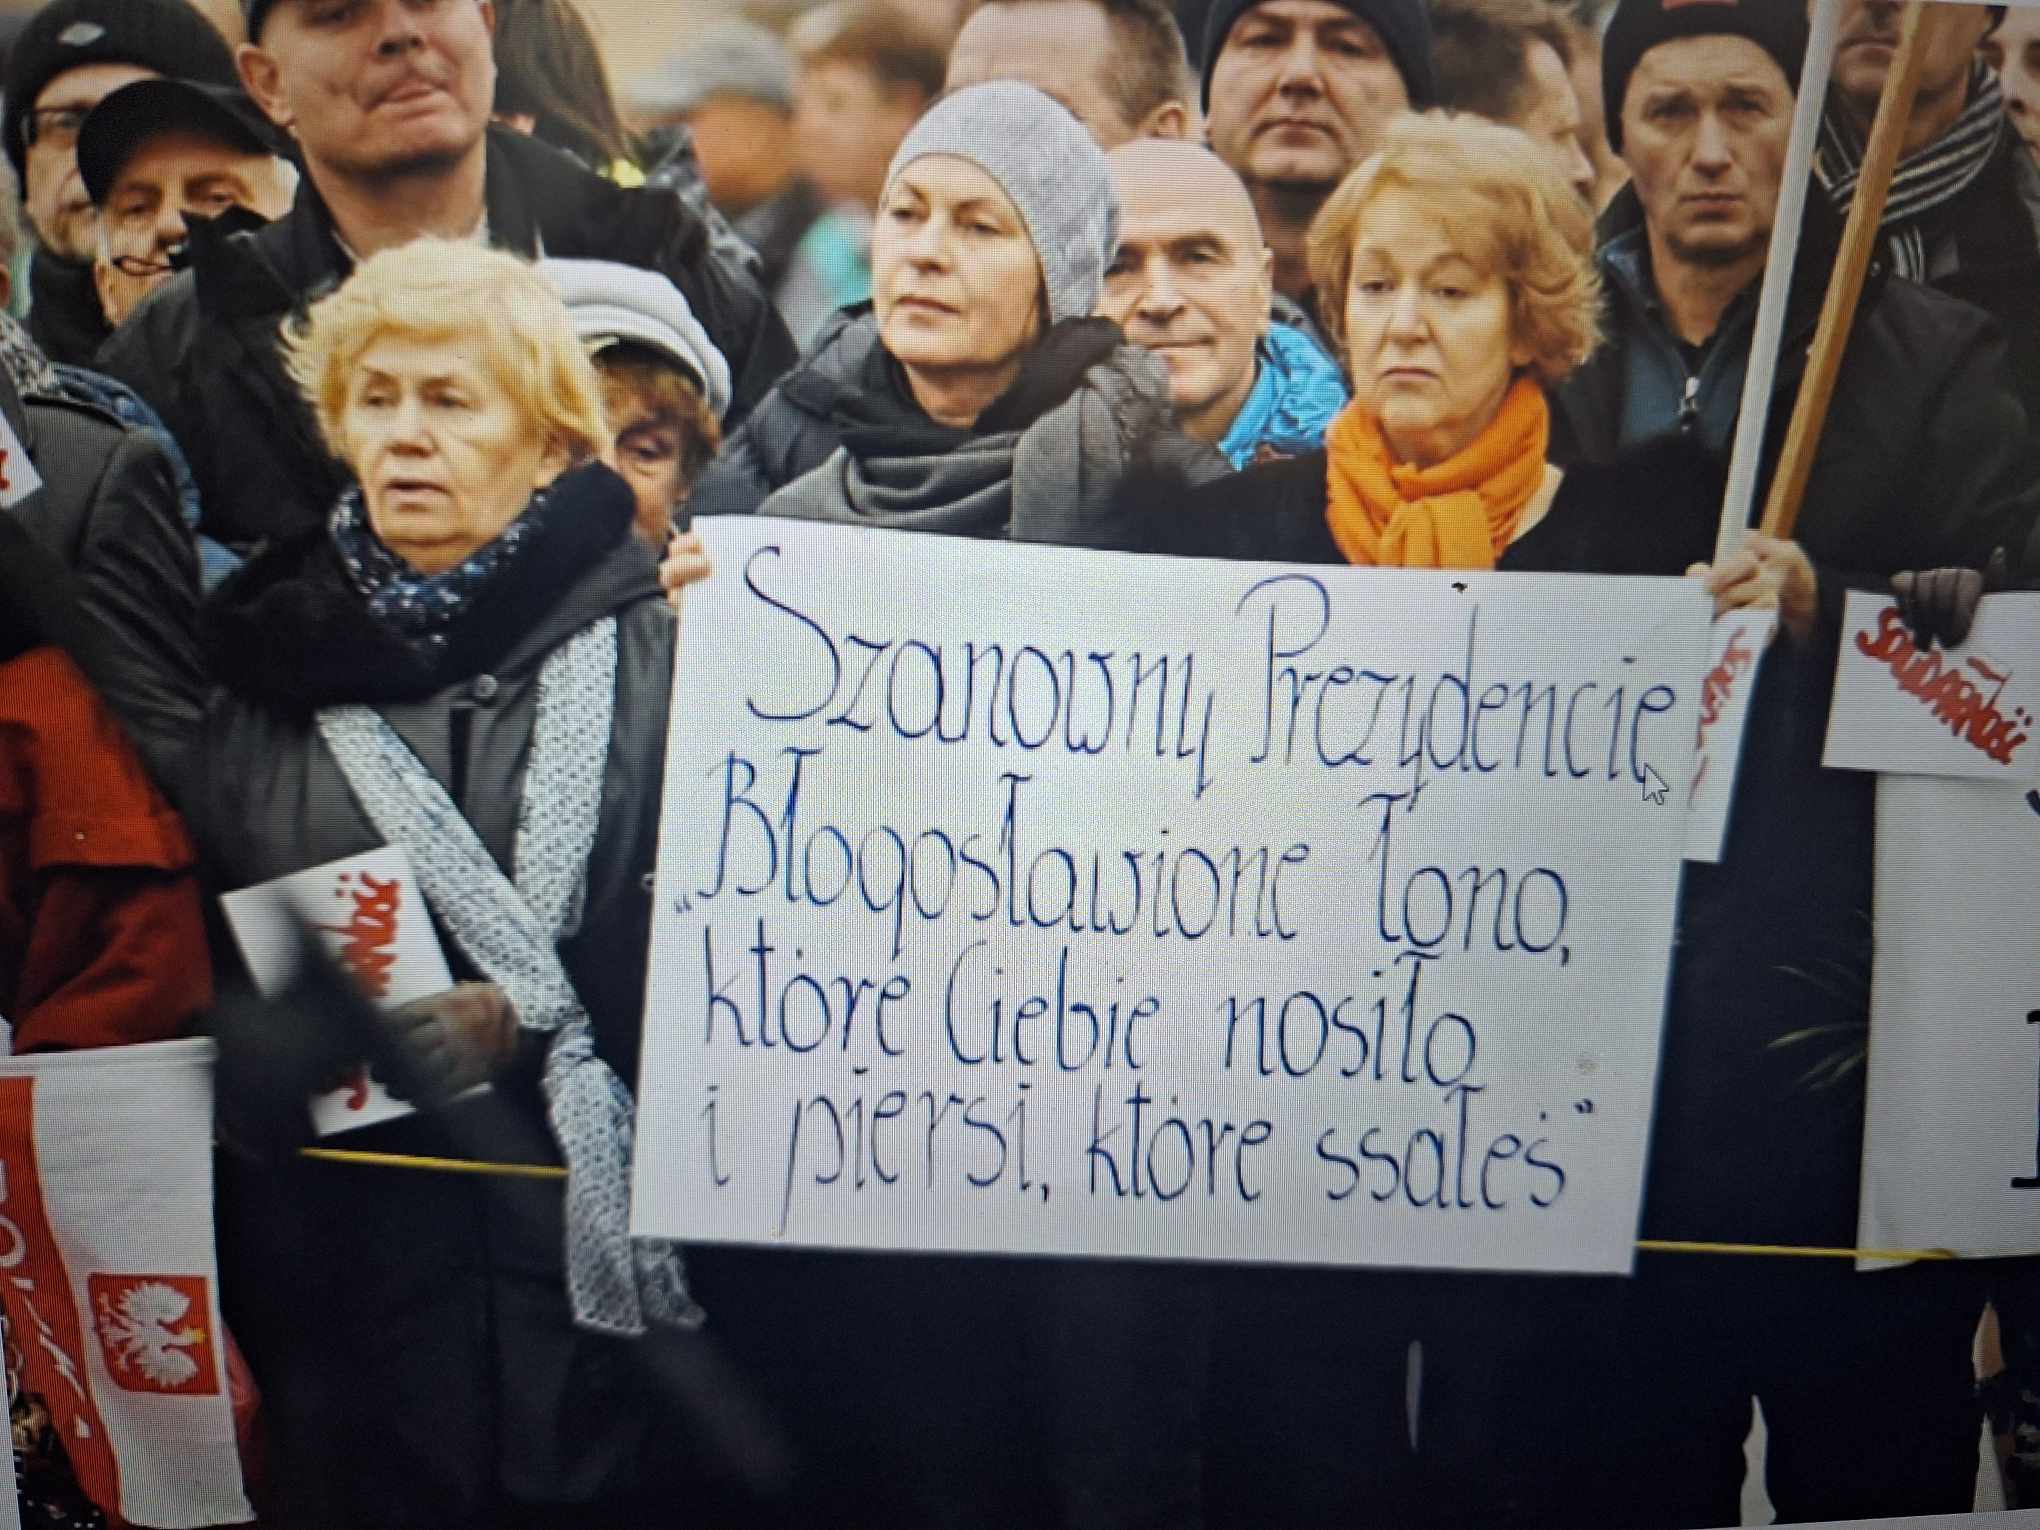 Szanowny Prezydencie
„Błogosławione łono,
które Ciebie nosiło
i piersi, które ssałeś”
SOLIDARNOŚĆ